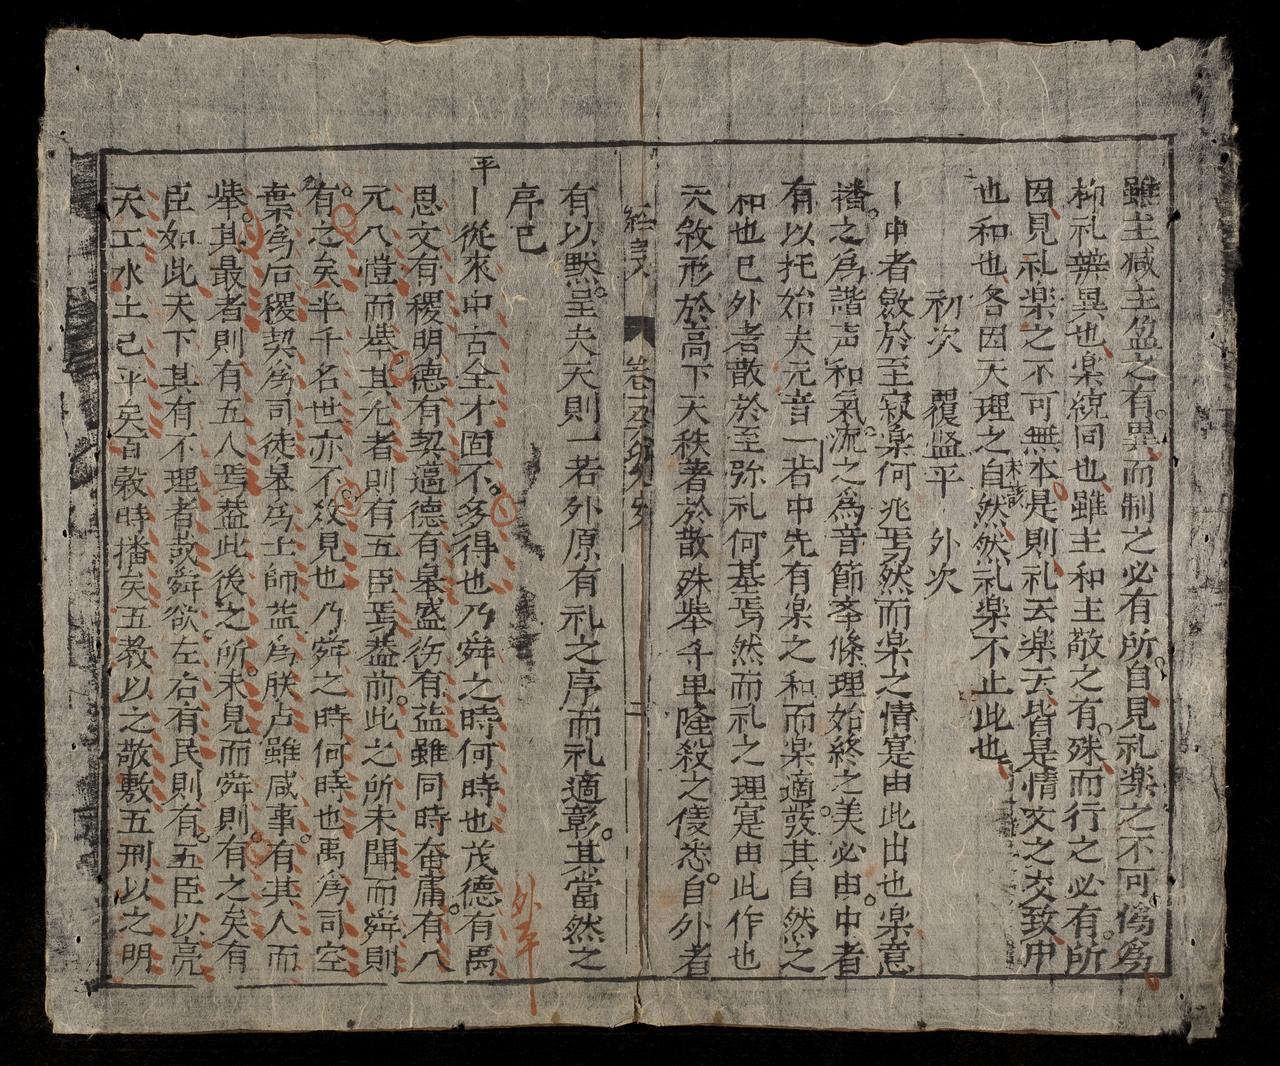 雖主減主盈之有異而制之必有所自見礼楽之不可偽爲
抑礼辨異也楽統同也雖主和主敬之有殊而行之必有所
因見礼楽之不可無本是則礼云楽云皆是情文之交致用
也和也各因天理之自然然礼楽不止此也
初次 覆盆平 外次
丨中者斂於至寂楽何兆焉然而楽之情寔由此出也楽意
播之為諧声和氣流之爲音節条條理始終之美必由中者
有以托始夫元音一若中先有楽之和而楽適發其自然之
和也已外者散於至弥礼何基焉然而礼之理寔由此作也
天敘形於高下天秩著於散殊举千里隆殺之儀悉自外者
經義 卷一
有以黙呈夫天則一若外原有礼之序而礼適彰其當然之
序已
平
丨從來中古全才固不多得也乃舜之時何時也茂德有禹
思文有稷明德有契邁德有皋盛伤有益雖同時奋庸有八
元八愷而举其尤者則有五臣焉盖前此之所未聞而舜則
有之矣半千名世亦不致見也乃舜之時何時也禹為司空
棄爲后稷契爲司徒皋爲士師益爲朕虞雖咸事有其人而
举其最者則有五人焉盖此後之所未見而舜則有之矣有
臣如此天下其有不理者哉舜欲左右有民則有五臣以亮
天工水土已平矣百穀時播矣五教以之敬敷五刑以之明
外平